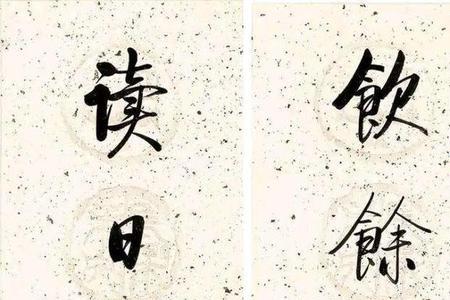 飲餘
读日